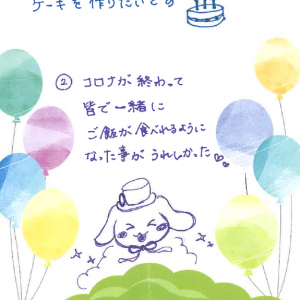 ケーキを作りたいです
② コロナが終わって
皆で一緒に
ご飯が食べれるように
なった事がうれしかった